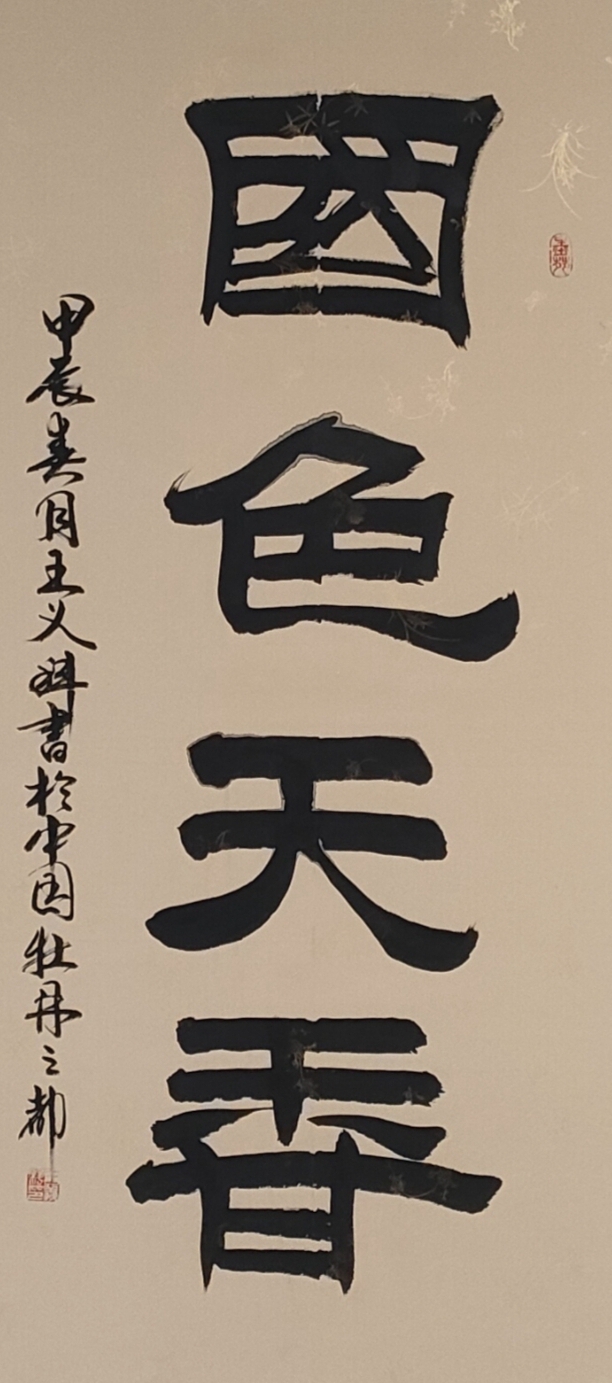 國色天香
甲辰春月王义科書於中国牡丹之都